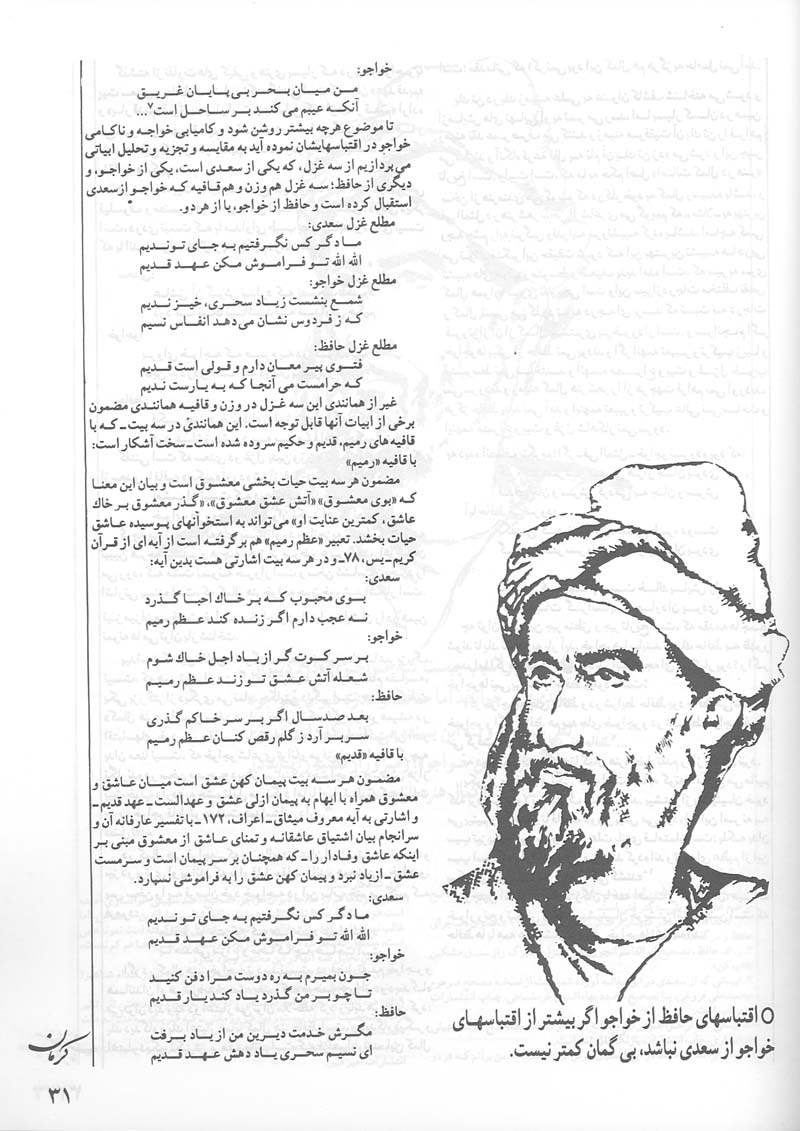 خواجو:
من میان بحر بی پایان غریق
آنکه عیبم می کند بر ساحل است۷...
تا موضوع هرچه بیشتر روشن شود و کامیابی خواجه و ناکامی
خواجو در اقتباسهایشان نموده آید به مقایسه و تجزیه و تحلیل ابیاتی
می پردازیم از سه غزل، که یکی از سعدی است، یکی از خواجو، و
دیگری از حافظ؛ سه غزل هم وزن و هم قافیه که خواجو از سعدی
استقبال کرده است و حافظ از خواجو، یا از هر دو.
مطلع غزل سعدی:
ما دگر کس نگرفتیم به جای تو ندیم
الله الله تو فراموش مکن عهد قدیم
مطلع غزل خواجو:
شمع بنشست زباد سحری، خیز ندیم
که ز فردوس نشان می دهد انفاس نسیم
مطلع غزل حافظ:
فتوی پیر مغان دارم و قولی است قدیم
که حرامست می آنجا که نه یارست ندیم
غیر از همانندی این سه غزل در وزن و قافیه همانندی مضمون
برخی از ابیات آنها قابل توجه است. این همانندی در سه بیت ـ که با
قافیه های رمیم، قدیم و حکیم سروده شده است ـ سخت آشکار است:
با قافیه «رمیم»
مضمون هر سه بیت حیات بخشی معشوق است و بیان این معنا
که «بوی معشوق» «آتش عشق معشوق»، «گذر معشوق بر خاك
عاشق، کمترین عنایت او» می تواند به استخوآنهای پوسیده عاشق
حیات بخشد. تعبیر «عظم رمیم» هم برگرفته است از آیه ای از قرآن
کریم ـ یس، ۷۸ـ و در هر سه بیت اشارتی هست بدین آیه:
سعدی:
بوی محبوب که بر خاك احبا گذرد
نه عجب دارم اگر زنده کند عظم رمیم
خواجو:
بر سر کوت گر از باد اجل خاك شوم
شعله آتش عشق تو زند عظم رمیم
حافظ:
بعد صدسال اگر بر سر خاکم گذری
سر بر آرد ز گلم رقص کنان عظم رمیم
با قافیه «قدیم»
مضمون هر سه بیت پیمان کهن عشق است میان عاشق و
معشوق همراه با ایهام به پیمان ازلی عشق و عهدالست ـ عهد قدیم ـ
و اشارتی به آیه معروف میثاق ـ اعراف، ۱۷۲ ـ با تفسیر عارفانه آن و
سرانجام بیان اشتیاق عاشقانه و تمنای عاشق از معشوق مبنی بر
اینکه عاشق وفادار را ـ که همچنان بر سر پیمان است و سرمست
عشق ـ ازیاد نبرد و پیمان کهن عشق را به فراموشی نسپارد.
سعدی:
ما دگر کس نگرفتیم به جای تو ندیم
الله الله تو فراموش مکن عهد قدیم
خواجو:
چون بمیرم به ره دوست مرا دفن کنید
تا چو بر من گذرد یاد کند یار قدیم
حافظ:
مگرش خدمت دیرین من از یاد برفت
ای نسیم سحری یاد دهش عهد قدیم
O اقتباسهای حافظ از خواجو اگر بیشتر از اقتباسهای
خواجو از سعدی نباشد، بی گمان کمتر نیست.
کرمان
۳۱